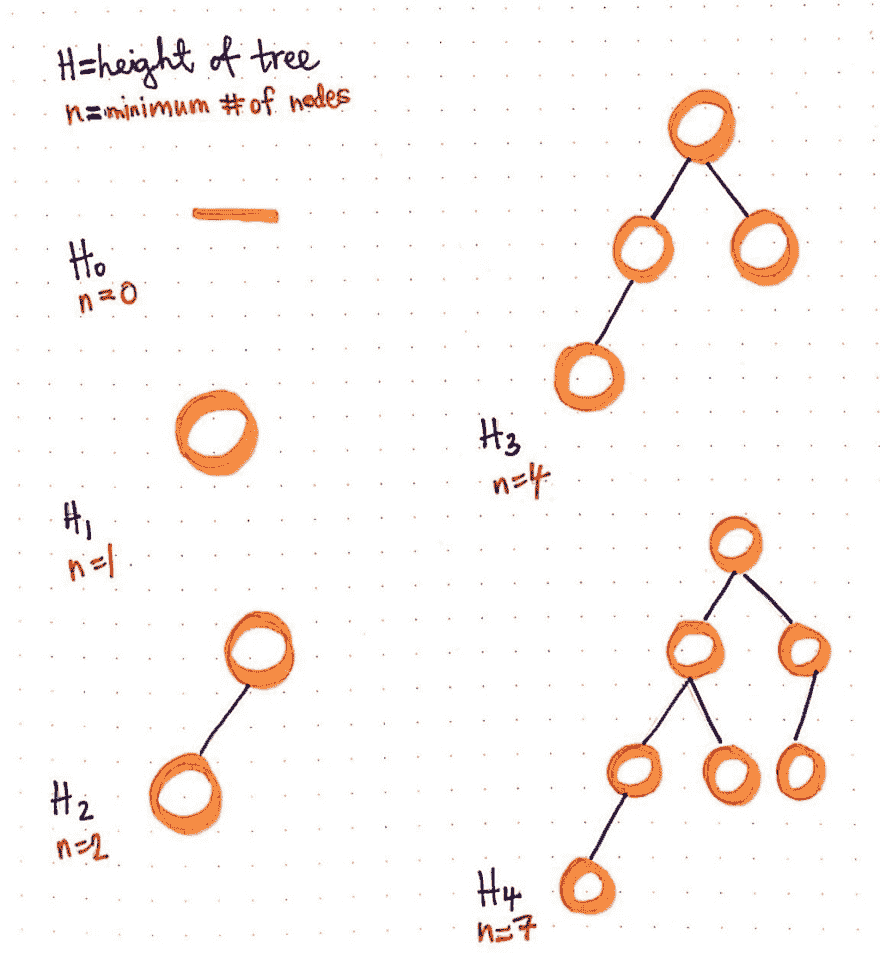 H=height of tree
n=minimum # of nodes
H₀
n=0
H₁
n=1
H₂
n=2
H₃
n=4
H₄
n=7